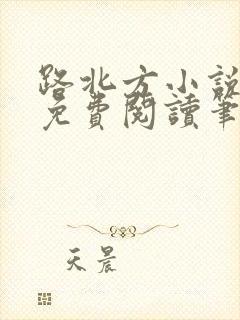 路北方小說
免費閱讀筆
天晨